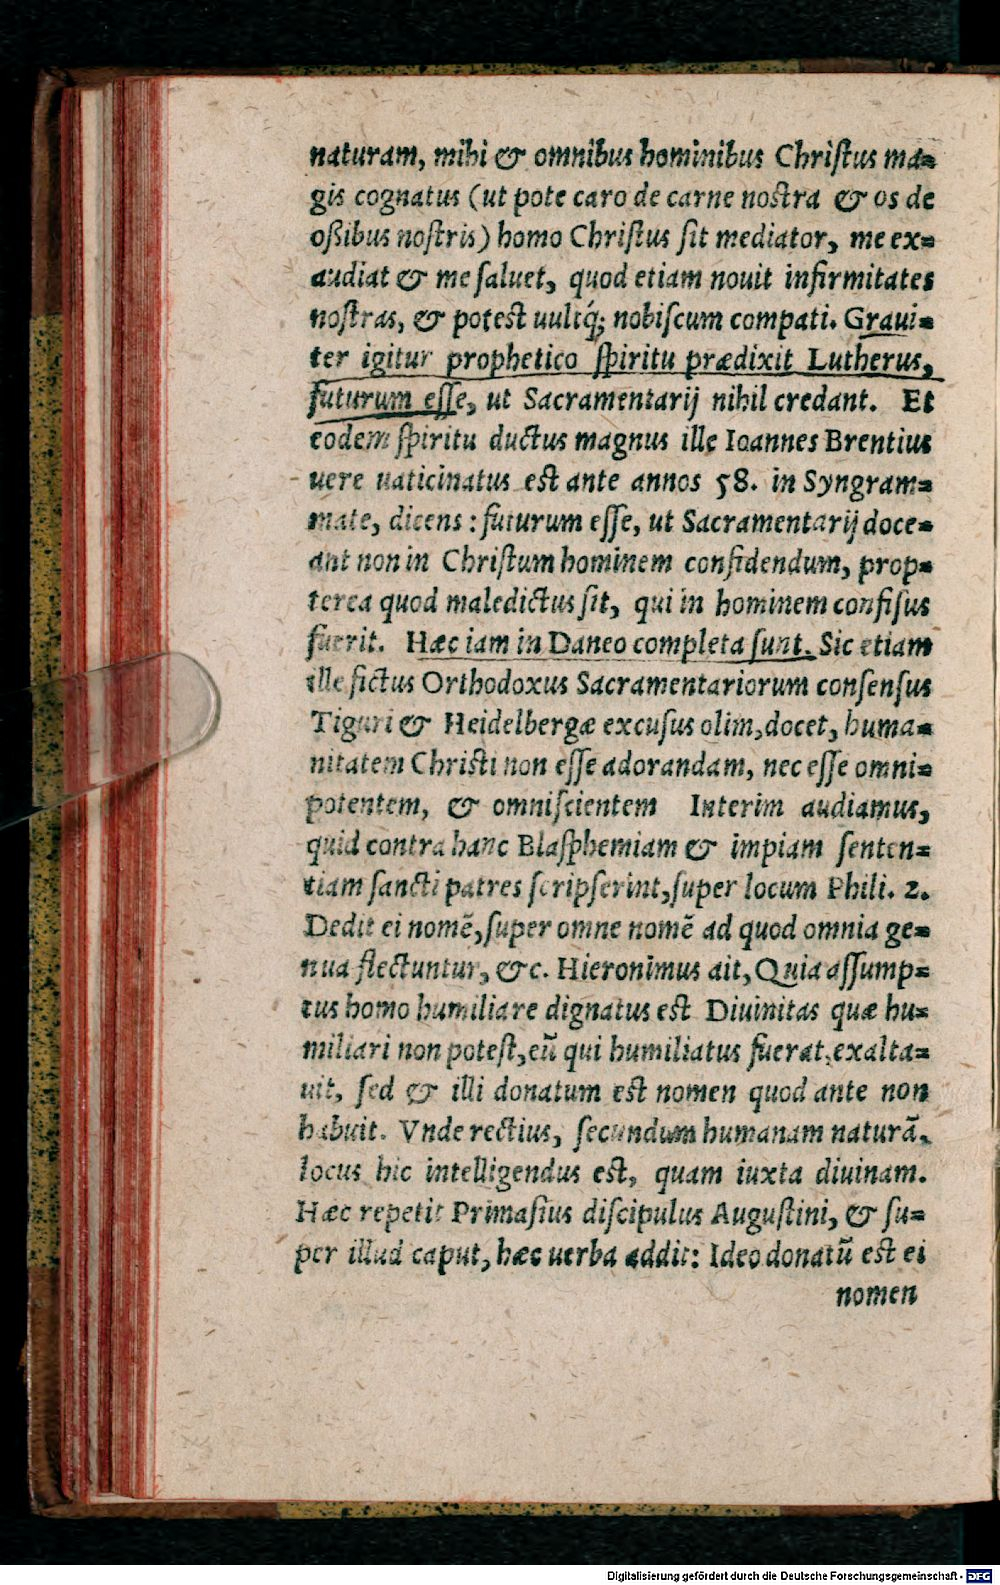 naturam, mihi & omnibus hominibus Christus ma=
gis cognatus (ut pote caro de carne nostra & os de
oßibus nostris) homo Christus sit mediator, me ex=
audiat & me saluet, quod etiam nouit infirmitates
nostras, & potest uultq́; nobiscum compati. Graui=
ter igitur prophetico spiritu prædixit Lutherus,
futurum esse, ut Sacramentarij nihil credant. Et
eodem spiritu ductus magnus ille Ioannes Brentius
uere uaticinatus est ante annos 58. in Syngram=
mate, dicens: futurum esse, ut Sacramentarij doce=
ant non in Christum hominem confidendum, prop=
terea quod maledictus sit, qui in hominem confisus
fuerit. Hæc iam in Daneo completa sunt. Sic etiam
ille fictus Orthodoxus Sacramentariorum consensus
Tiguri & Heidelbergæ excusus olim, docet, huma=
nitatem Christi non esse adorandam, nec esse omni=
potentem, & omniscientem Interim audiamus,
quid contra hanc Blasphemiam & impiam senten=
tiam sancti patres scripserint, super locum Phili. 2.
Dedit ei nomẽ, super omne nomẽ ad quod omnia ge=
nua flectuntur, &c. Hieronimus ait, Quia assump=
tus homo humiliare dignatus est Diuinitas quæ hu=
miliari non potest, eũ qui humiliatus fuerat, exalta=
uit, sed & illi donatum est nomen quod ante non
habuit. Vnde rectius, secundum humanam naturã,
locus hic intelligendus est, quam iuxta diuinam.
Hæc repetit Primasius discipulus Augustini, & su=
per illud caput, hæc uerba addit: Ideo donatũ est ei
nomen
Digitalisierung gefördert durch die Deutsche Forschungsgemeinschaft - DFG